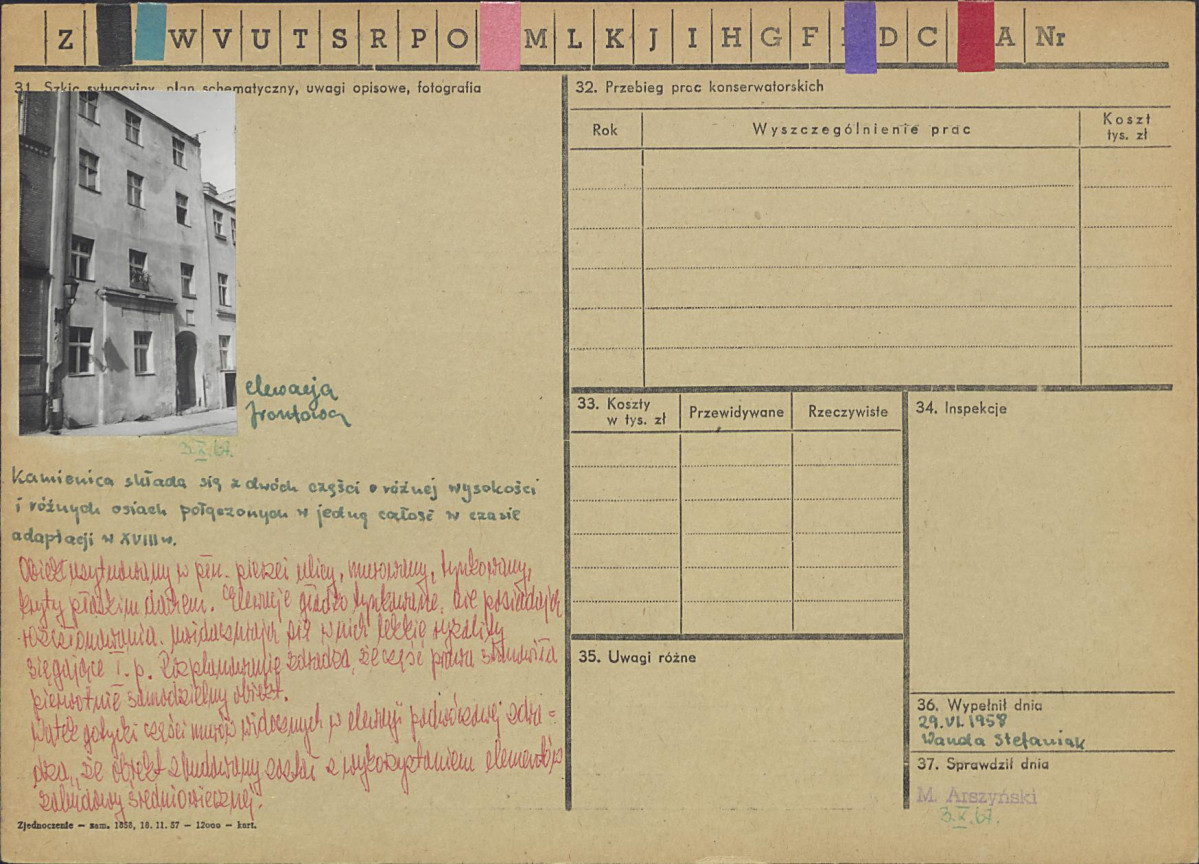 Z W V U T S R P O M L K J I H G F D C A Nr
31. Szkic sytuacyjny, plan schematyczny, uwagi opisowe, fotografia
elewacja
frontowa
3.X.67.
Kamienica składa się z dwóch części o różnej wysokości
i różnych osiach połączonych w jedną całość w czasie
adaptacji w XVIII w.
Obiekt usytuowany w płn. pierzei ulicy, murowany, tynkowany,
kryty płaskim dachem. Elewacje gładko tynkowane, nie posiadają
rozczłonkowania. uwidaczniają się w nich lekkie ryzality
sięgające I. p. Rozplanowanie zdradza, że część prawa stanowiła
pierwotnie samodzielny obiekt.
Wątek gotycki części murów widocznych w elewacji podwórzowej zdra=
dza, że obiekt zbudowany został z wykorzystaniem elementów
zabudowy średniowiecznej.
Zjednoczenie — zam. 1858, 18. 11. 57 — 12000 — kart.
32. Przebieg prac konserwatorskich
Rok Wyszczególnienie prac Koszt
tys. zł
33. Koszty
w tys. zł Przewidywane Rzeczywiste
34. Inspekcje
35. Uwagi różne
36. Wypełnił dnia
29.VI.1958
Wanda Stefaniak
37. Sprawdził dnia
M. Arszyński
3.X.67.